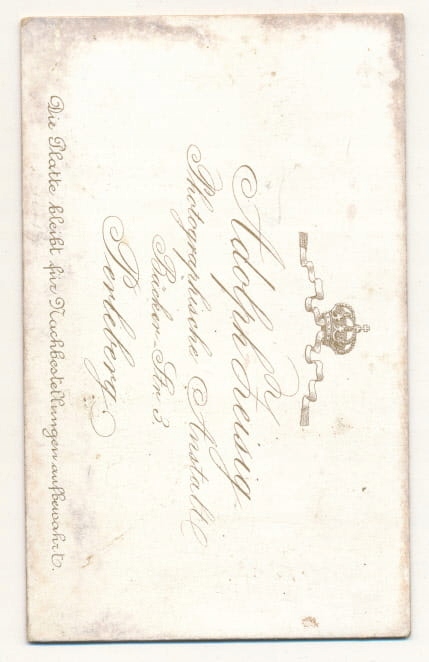 Adolph Zeisig.
Photographische Anstalt
Bäcker-Str. 3.
Perleberg.
Die Platte bleibt für Nachbestellungen aufbewahrt.